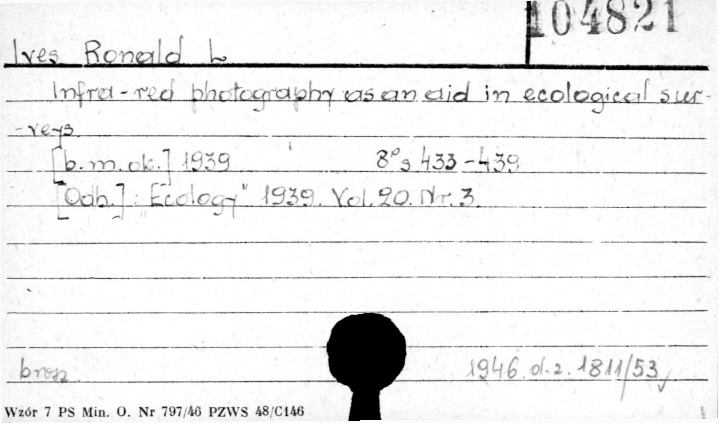 104821
Ives Ronald L
Infra-red photography as an aid in ecological sur-
-veys
[b.m.ok.] 1939 8° s 433-439
[Odb.]: „Ecology" 1939. Vol. 20. Nr. 3.
brosz. 1946. d. z. 1811/53
Wzór 7 PS Min. O. Nr 797/46 PZWS 48/C146